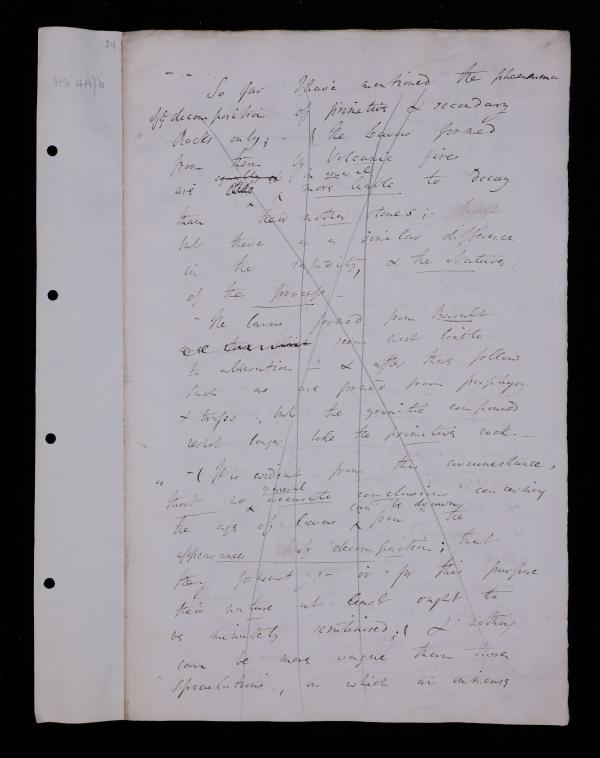 29
11
HD 4A/6
So far I have mentioned the phaenomena
of the decomposition of primitive & secondary
Rocks only; - The Lavas formed
from them by Volcanic fires
in general
are more liable to decay
than their mother stones; -
but there is a similar difference
in the rapidity, & the Nature,
of the process. -
The lavas formed from Basalt
seem most liable
to alteration - & after these follow
such as are formed from porphyry
& traps, but the granitic compound
resist longer, like the primitive rock. -
- It is evident from this circumstance,
general
that no accurate conclusions concerning
can be drawn
the age of lavas from the
appearances of decomposition; that
they present - or for this purpose
their nature at least ought to
be minutely scrutinised; & nothing
can be more vague than those
"Speculations", in which an immense